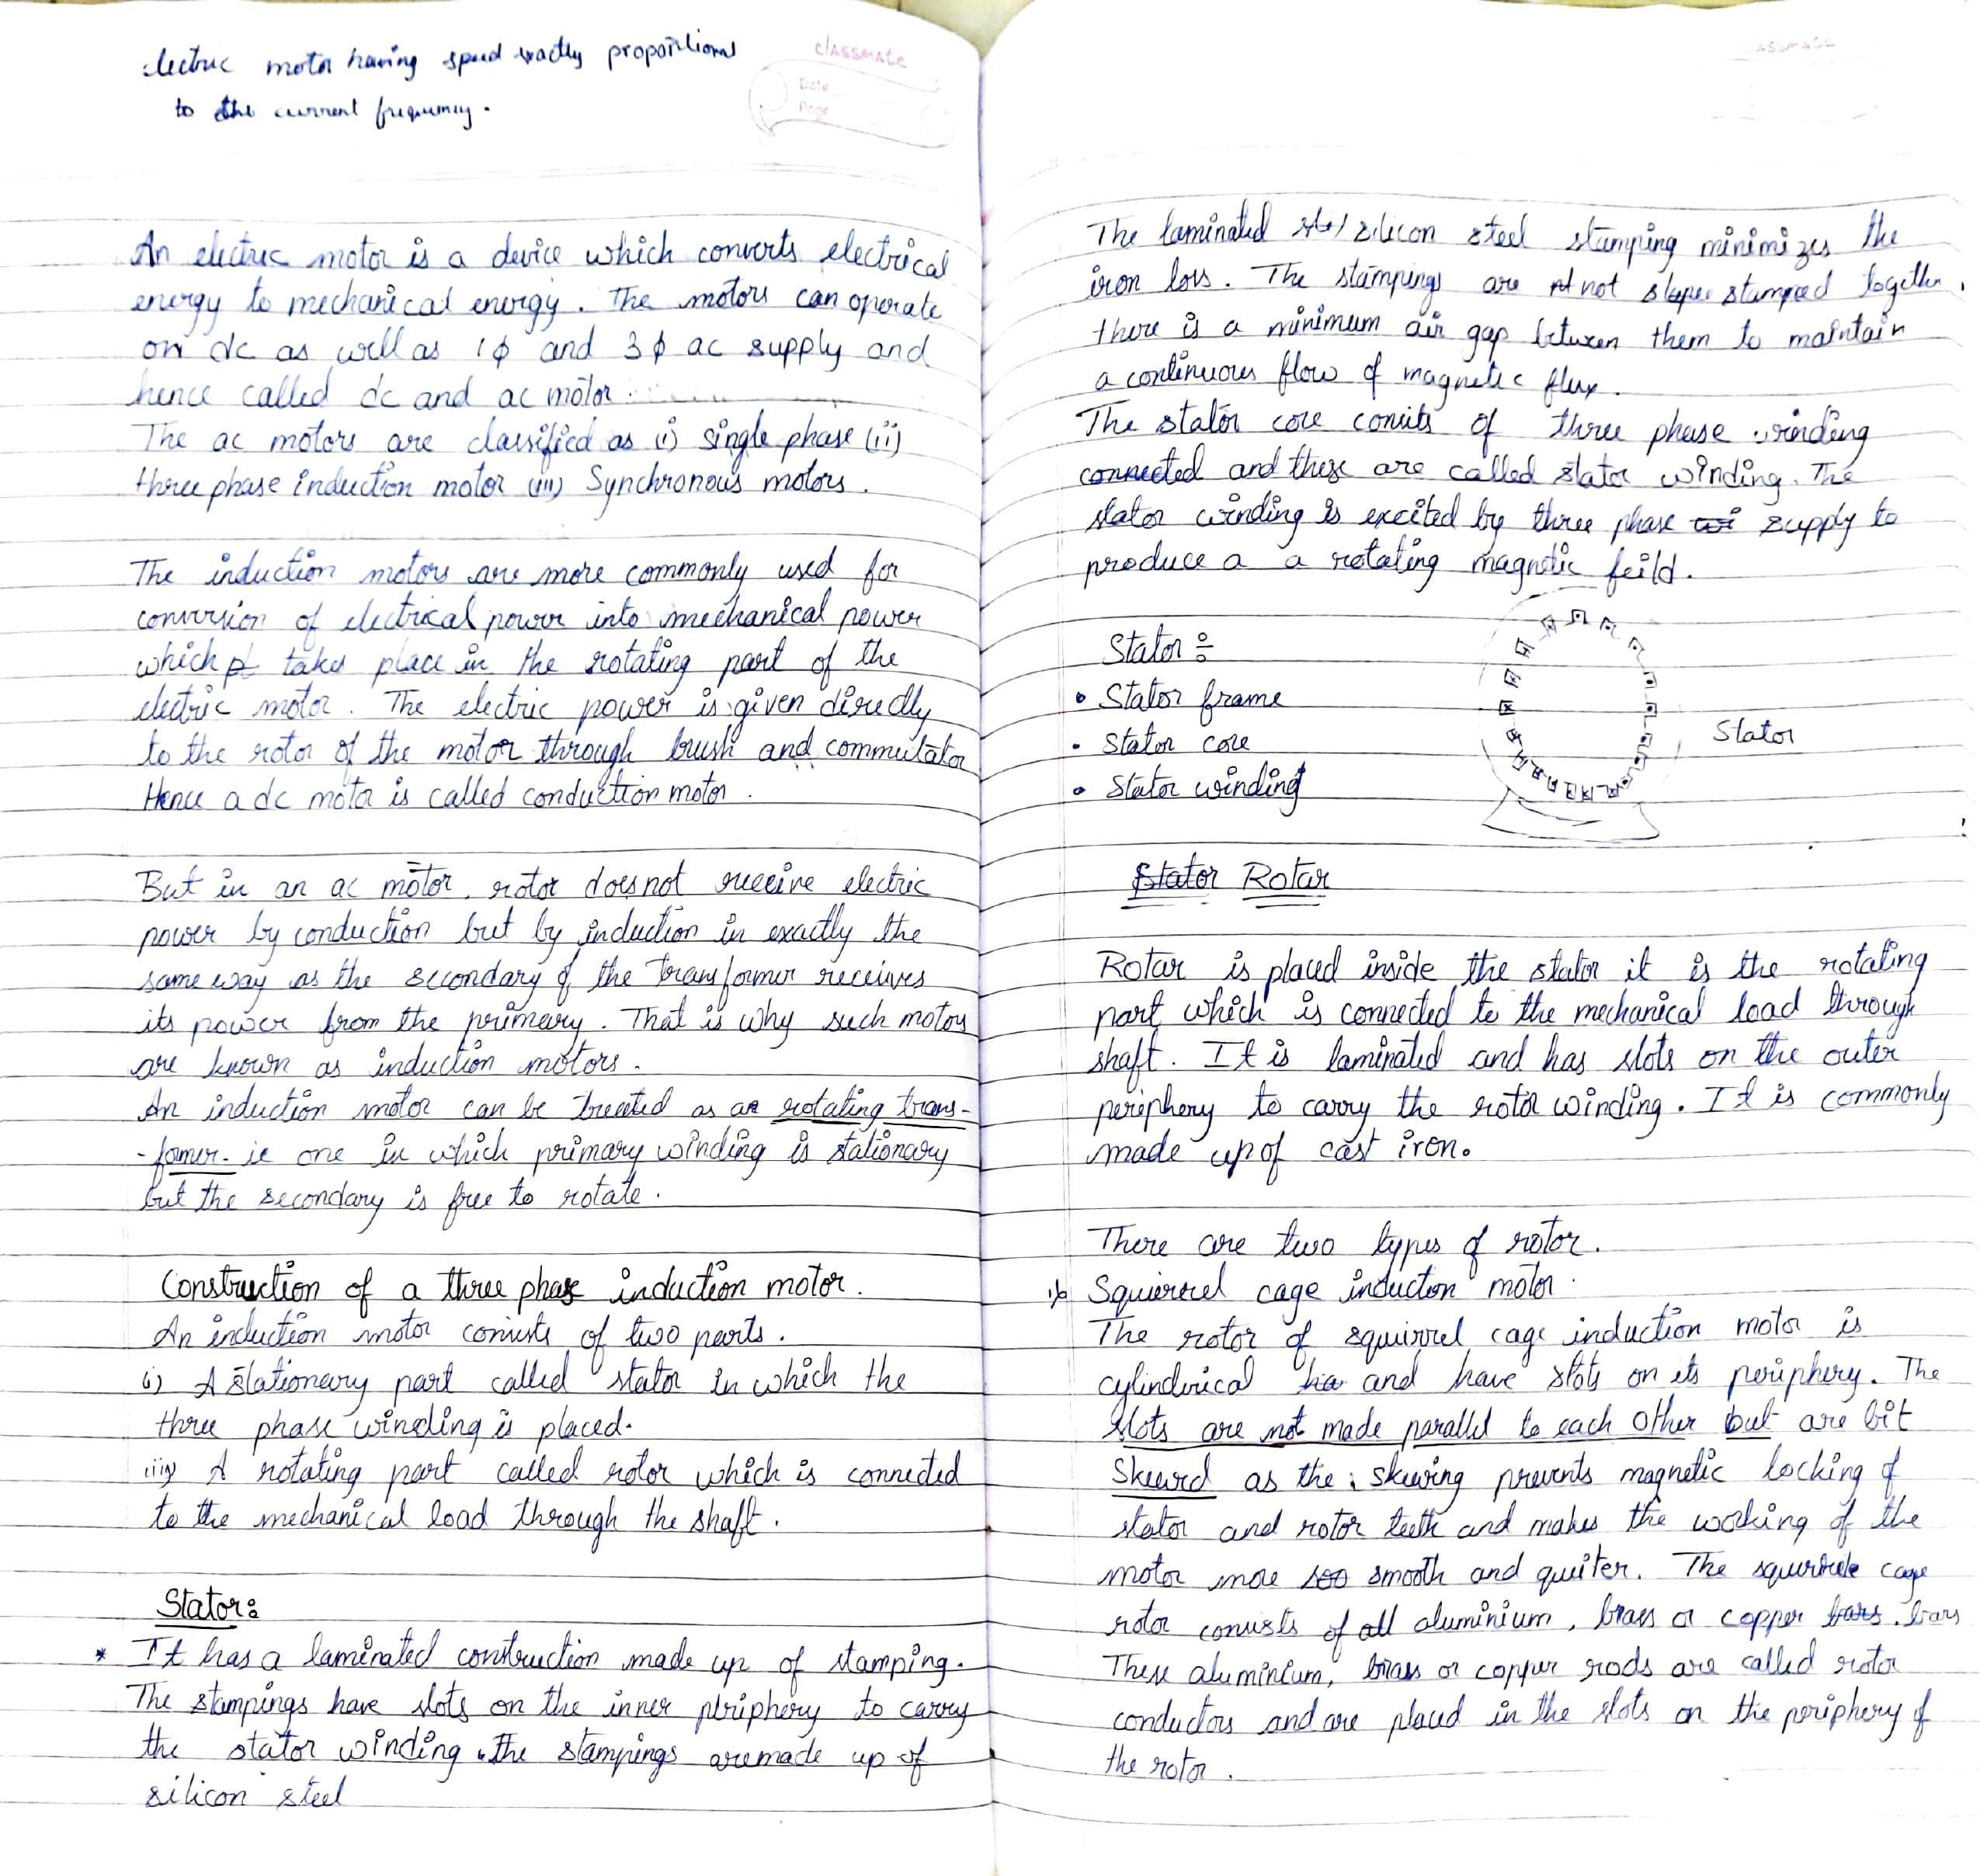 electric motor having speed exactly proportional
to the current frequency.
classmate
Date
Page
An electric motor is a device which converts electrical
energy to mechanical energy. The motors can operate
on dc as well as 1ϕ and 3ϕ ac supply and
hence called dc and ac motor.
The ac motors are classified as (i) single phase (ii)
three phase induction motor (iii) Synchronous motors.
The induction motors are more commonly used for
conversion of electrical power into mechanical power
which takes place in the rotating part of the
electric motor. The electric power is given directly
to the rotor of the motor through brush and commutator
Hence a dc motor is called conduction motor.
But in an ac motor, rotor does not receive electric
power by conduction but by induction in exactly the
same way as the secondary of the transformer receives
its power from the primary. That is why such motors
are known as induction motors.
An induction motor can be treated as a rotating trans-
-fomer- ie one in which primary winding is stationary
but the secondary is free to rotate.
Construction of a three phase induction motor.
An induction motor consists of two parts.
(i) A stationary part called stator in which the
three phase winding is placed.
(iii) A rotating part called rotor which is connected
to the mechanical load through the shaft.
Stator:
* It has a laminated construction made up of stamping.
The stampings have slots on the inner priphery to carry
the stator winding. The stampings are made up of
silicon steel
classmate
The laminated silicon steel stamping minimizes the
iron loss. The stampings are not stamped together,
there is a minimum air gap between them to maintain
a continuous flow of magnetic flux.
The stator core consits of three phase winding
connected and these are called stator winding. The
stator winding is excited by three phase supply to
produce a a rotating magnetic feild.
Stator :
• Stator frame
• Stator core
• Stator winding
Stator
Stator Rotar
Rotar is placed inside the stator it is the rotating
part which is connected to the mechanical load through
shaft. It is laminated and has slots on the outer
periphery to carry the rotor winding. It is commonly
made up of cast iron.
There are two types of rotor.
Squirrel cage induction motor.
The rotor of squirrel cage induction motor is
cylindrical and have slots on its periphery. The
slots are not made parallel to each other but are bit
Skewed as the skewing prevents magnetic locking of
stator and rotor teeth and makes the working of the
motor more smooth and quiter. The cage
rotor consists of all aluminium, brass or copper bars. bars
These aluminium, brass or copper rods are called rotor
conductors and are placed in the slots on the periphery of
the rotor.